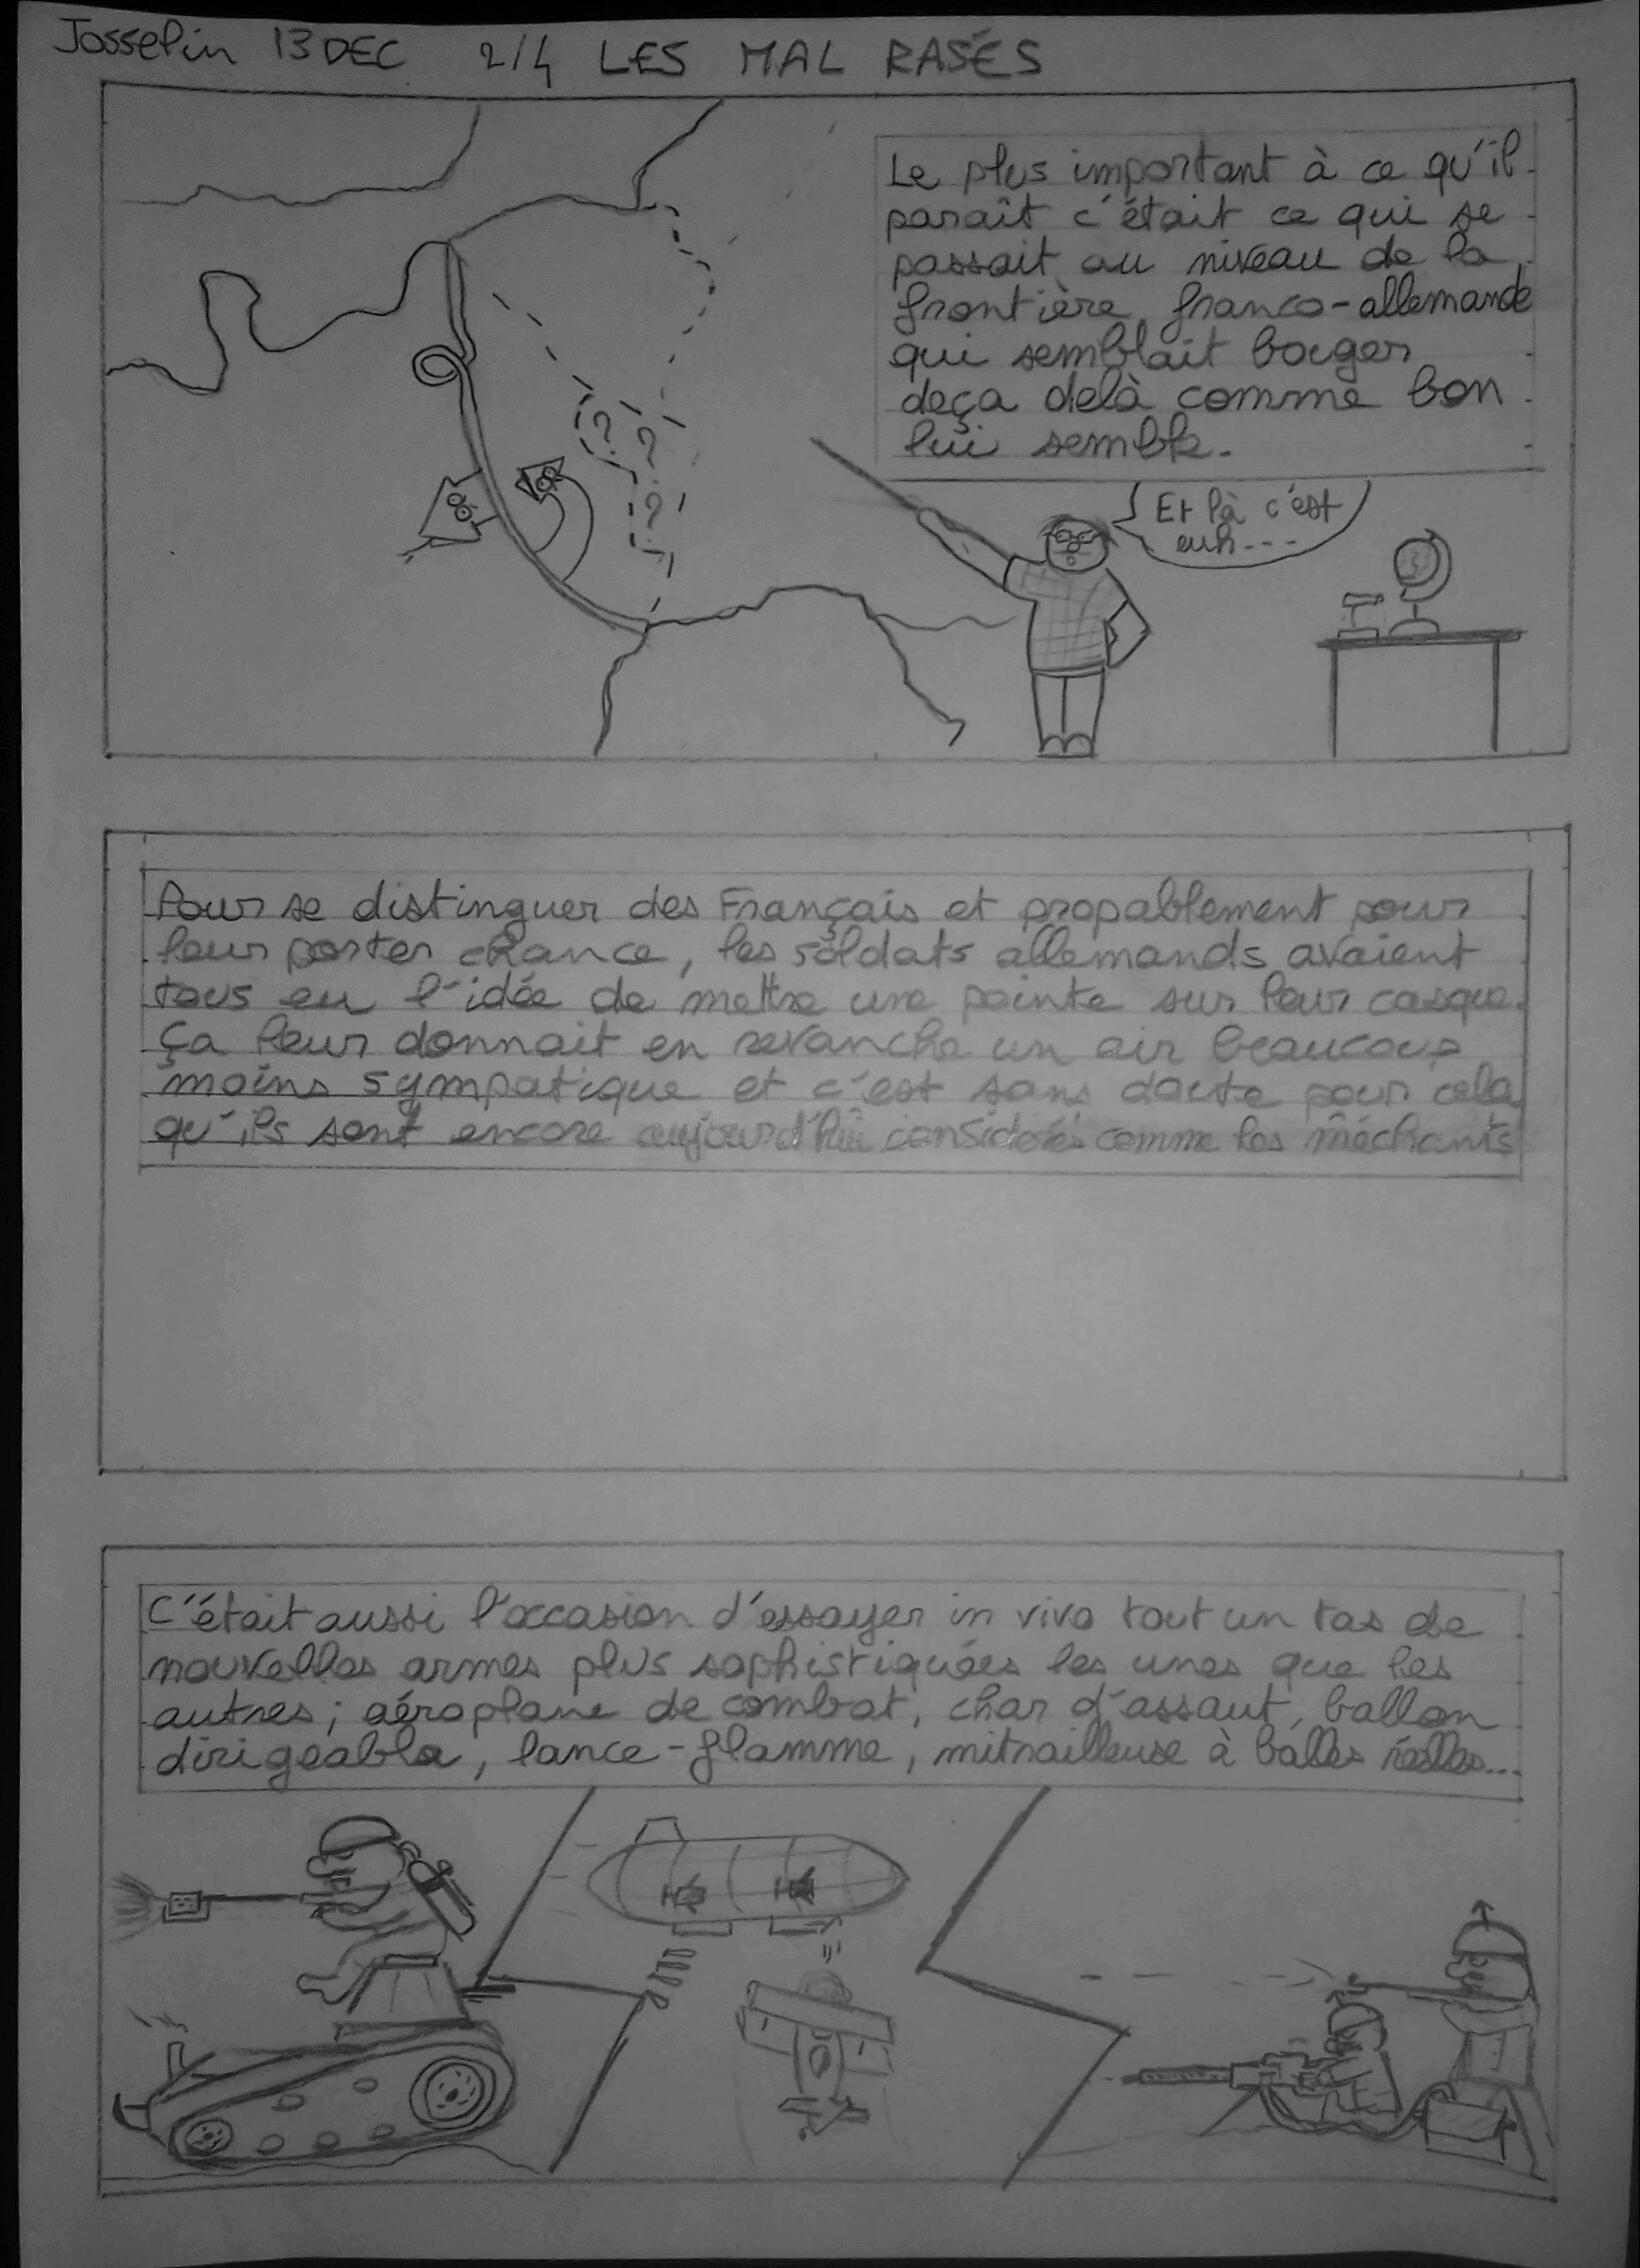 Josselin 13 DEC 2/4 LES MAL RASÉS
Le plus important à ce qu'il
paraît c'était ce qui se
passait au niveau de la
frontière franco-allemande
qui semblait bouger
deça delà comme bon
lui semble.
Et là c'est
euh...
?
?
?
Pour se distinguer des Français et propablement pour
leur porter chance, les soldats allemands avaient
tous eu l'idée de mettre une pointe sur leur casque.
Ça leur donnait en revanche un air beaucoup
moins sympatique et c'est sans doute pour cela
qu'ils sont encore aujourd'hui considérés comme les méchants
C'était aussi l'occasion d'essayer in vivo tout un tas de
nouvelles armes plus sophistiquées les unes que les
autres; aéroplane de combat, char d'assaut, ballon
dirigeable, lance-flamme, mitrailleuse à balles réelles...